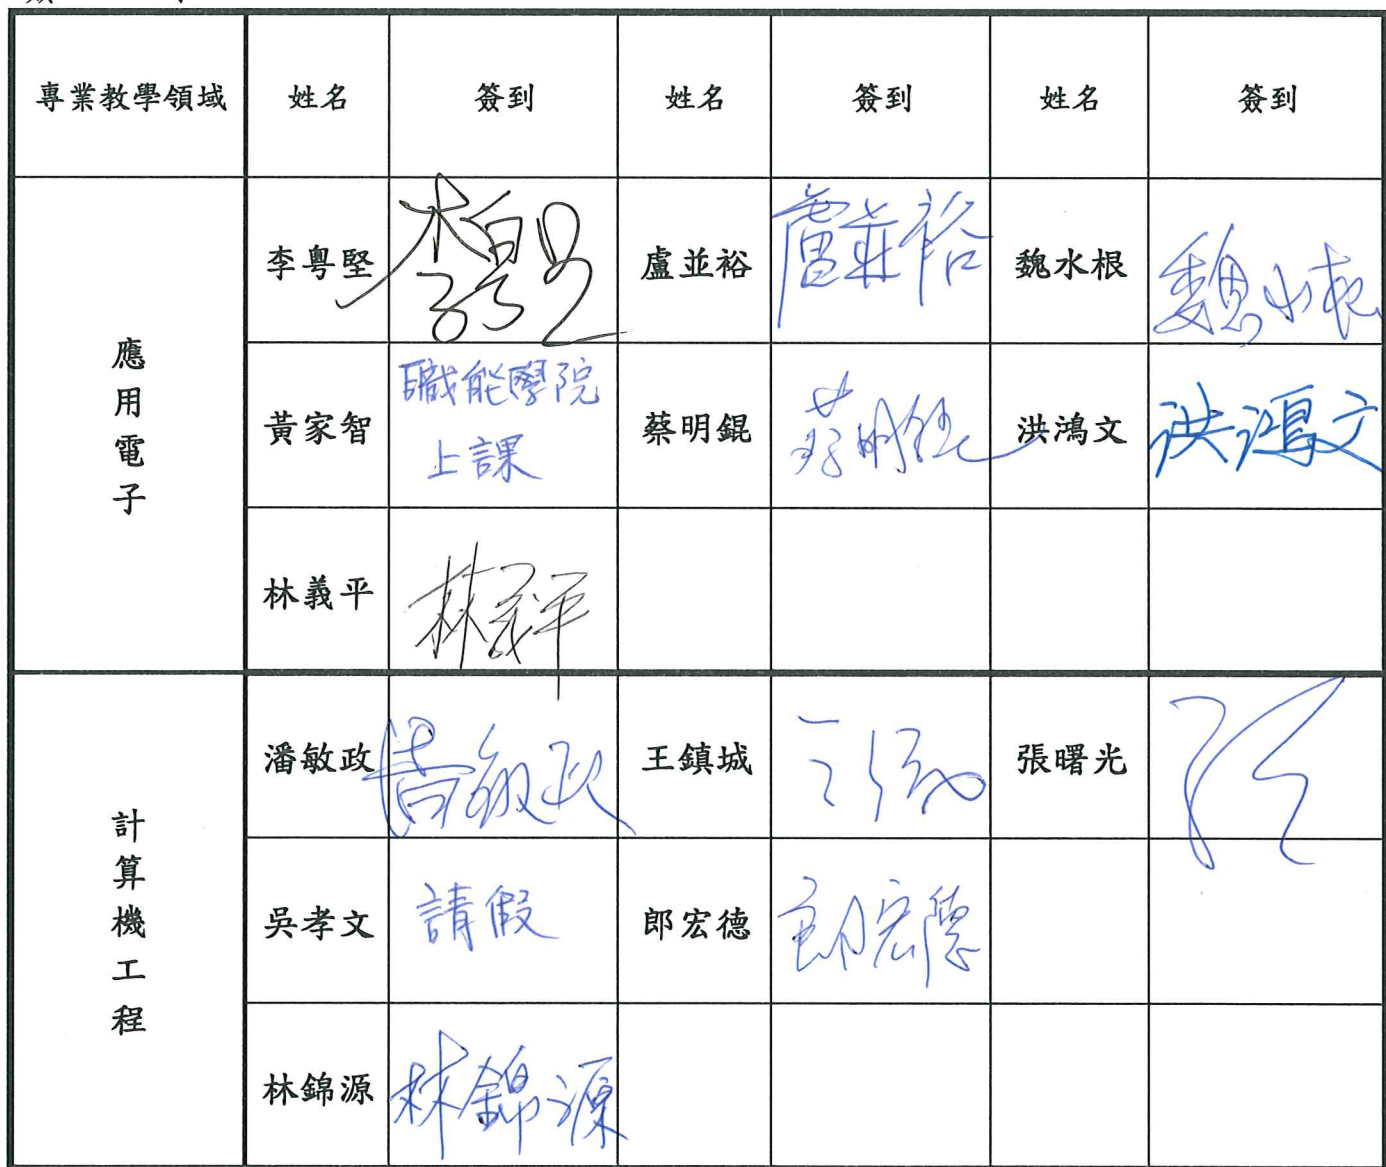 專業教學領域 姓名 簽到 姓名 簽到 姓名 簽到
應用電子
李粵堅 盧並裕 盧並裕 魏水根 魏水根
黃家智 職能學院 蔡明錕 蔡明錕 洪鴻文 洪鴻文
上課
林義平 林義平
計算機工程
潘敏政 潘敏政 王鎮城 張曙光
吳孝文 請假 郎宏德 郎宏德
林錦源 林錦源